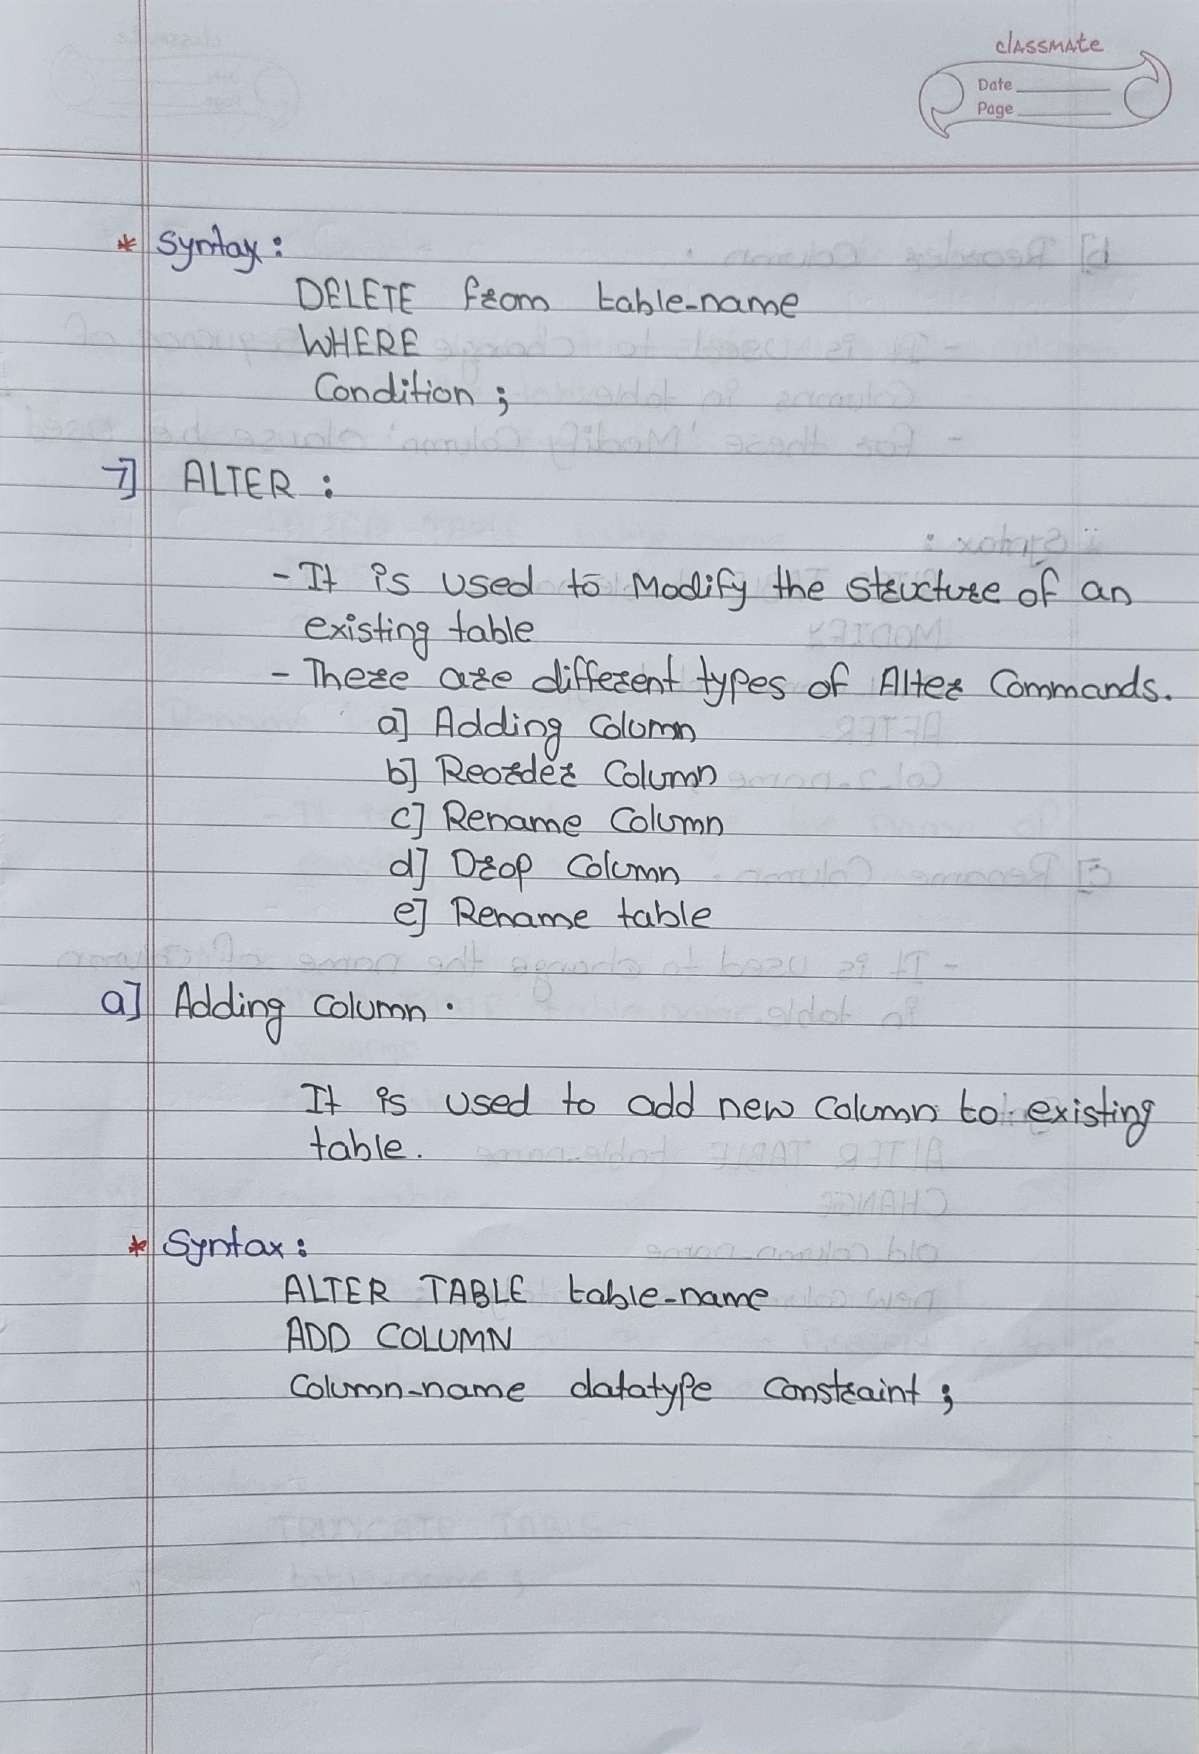 classmate
Date
Page
* Syntax :
DELETE from table-name
WHERE
Condition ;
7] ALTER :
- It is used to Modify the structure of an
existing table
- There are different types of Alter Commands.
a] Adding Column
b] Reorder Column
c] Rename Column
d] Drop Column
e] Rename table
a] Adding Column .
It is used to add new Column to existing
table.
* Syntax :
ALTER TABLE table-name
ADD COLUMN
Column-name datatype Constraint ;